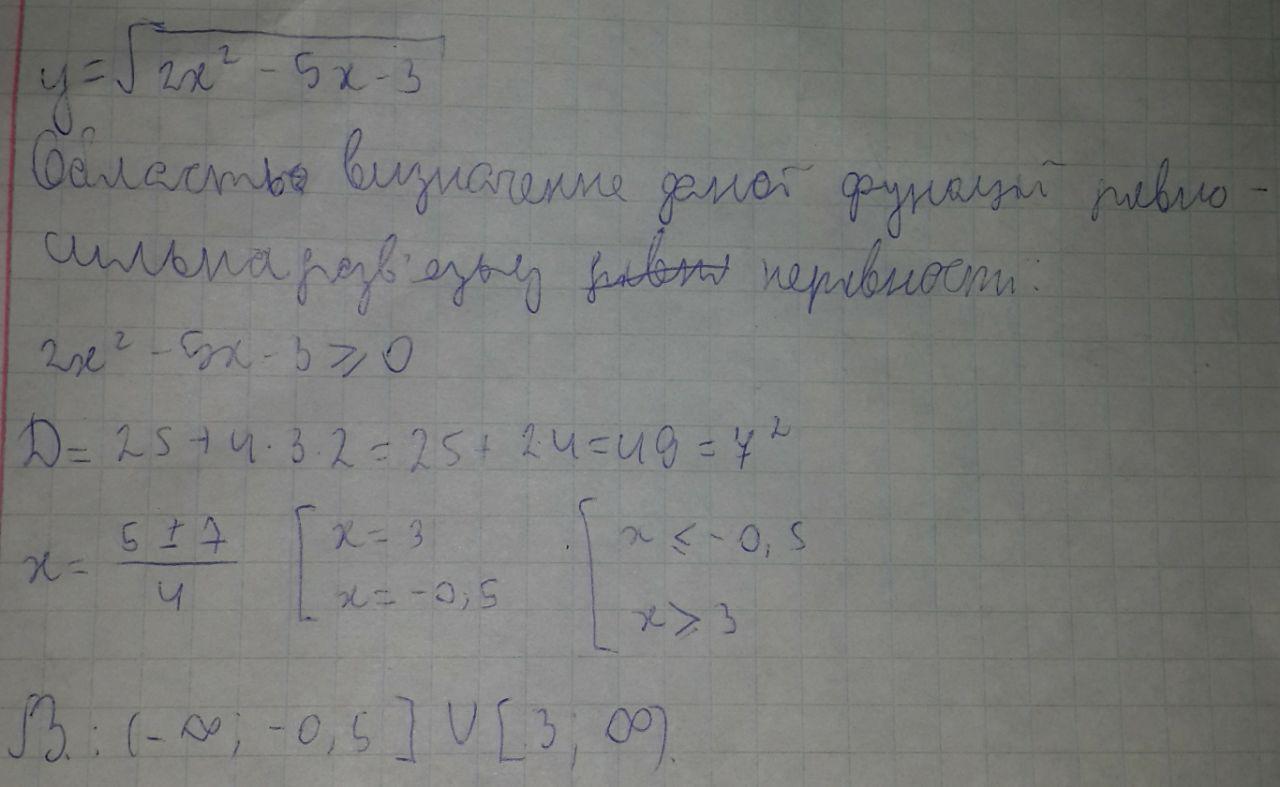 y = √(2x² - 5x - 3)
Область визначення даної функції рівно-
сильна розв'язку нерівності:
2x² - 5x - 3 ≥ 0
D = 25 + 4 · 3 · 2 = 25 + 24 = 49 = 7²
x = (5 ± 7)/4 [ x = 3 x = -0,5 [ x ≤ -0,5 x ≥ 3
В: (-∞; -0,5] ∪ [3; ∞).